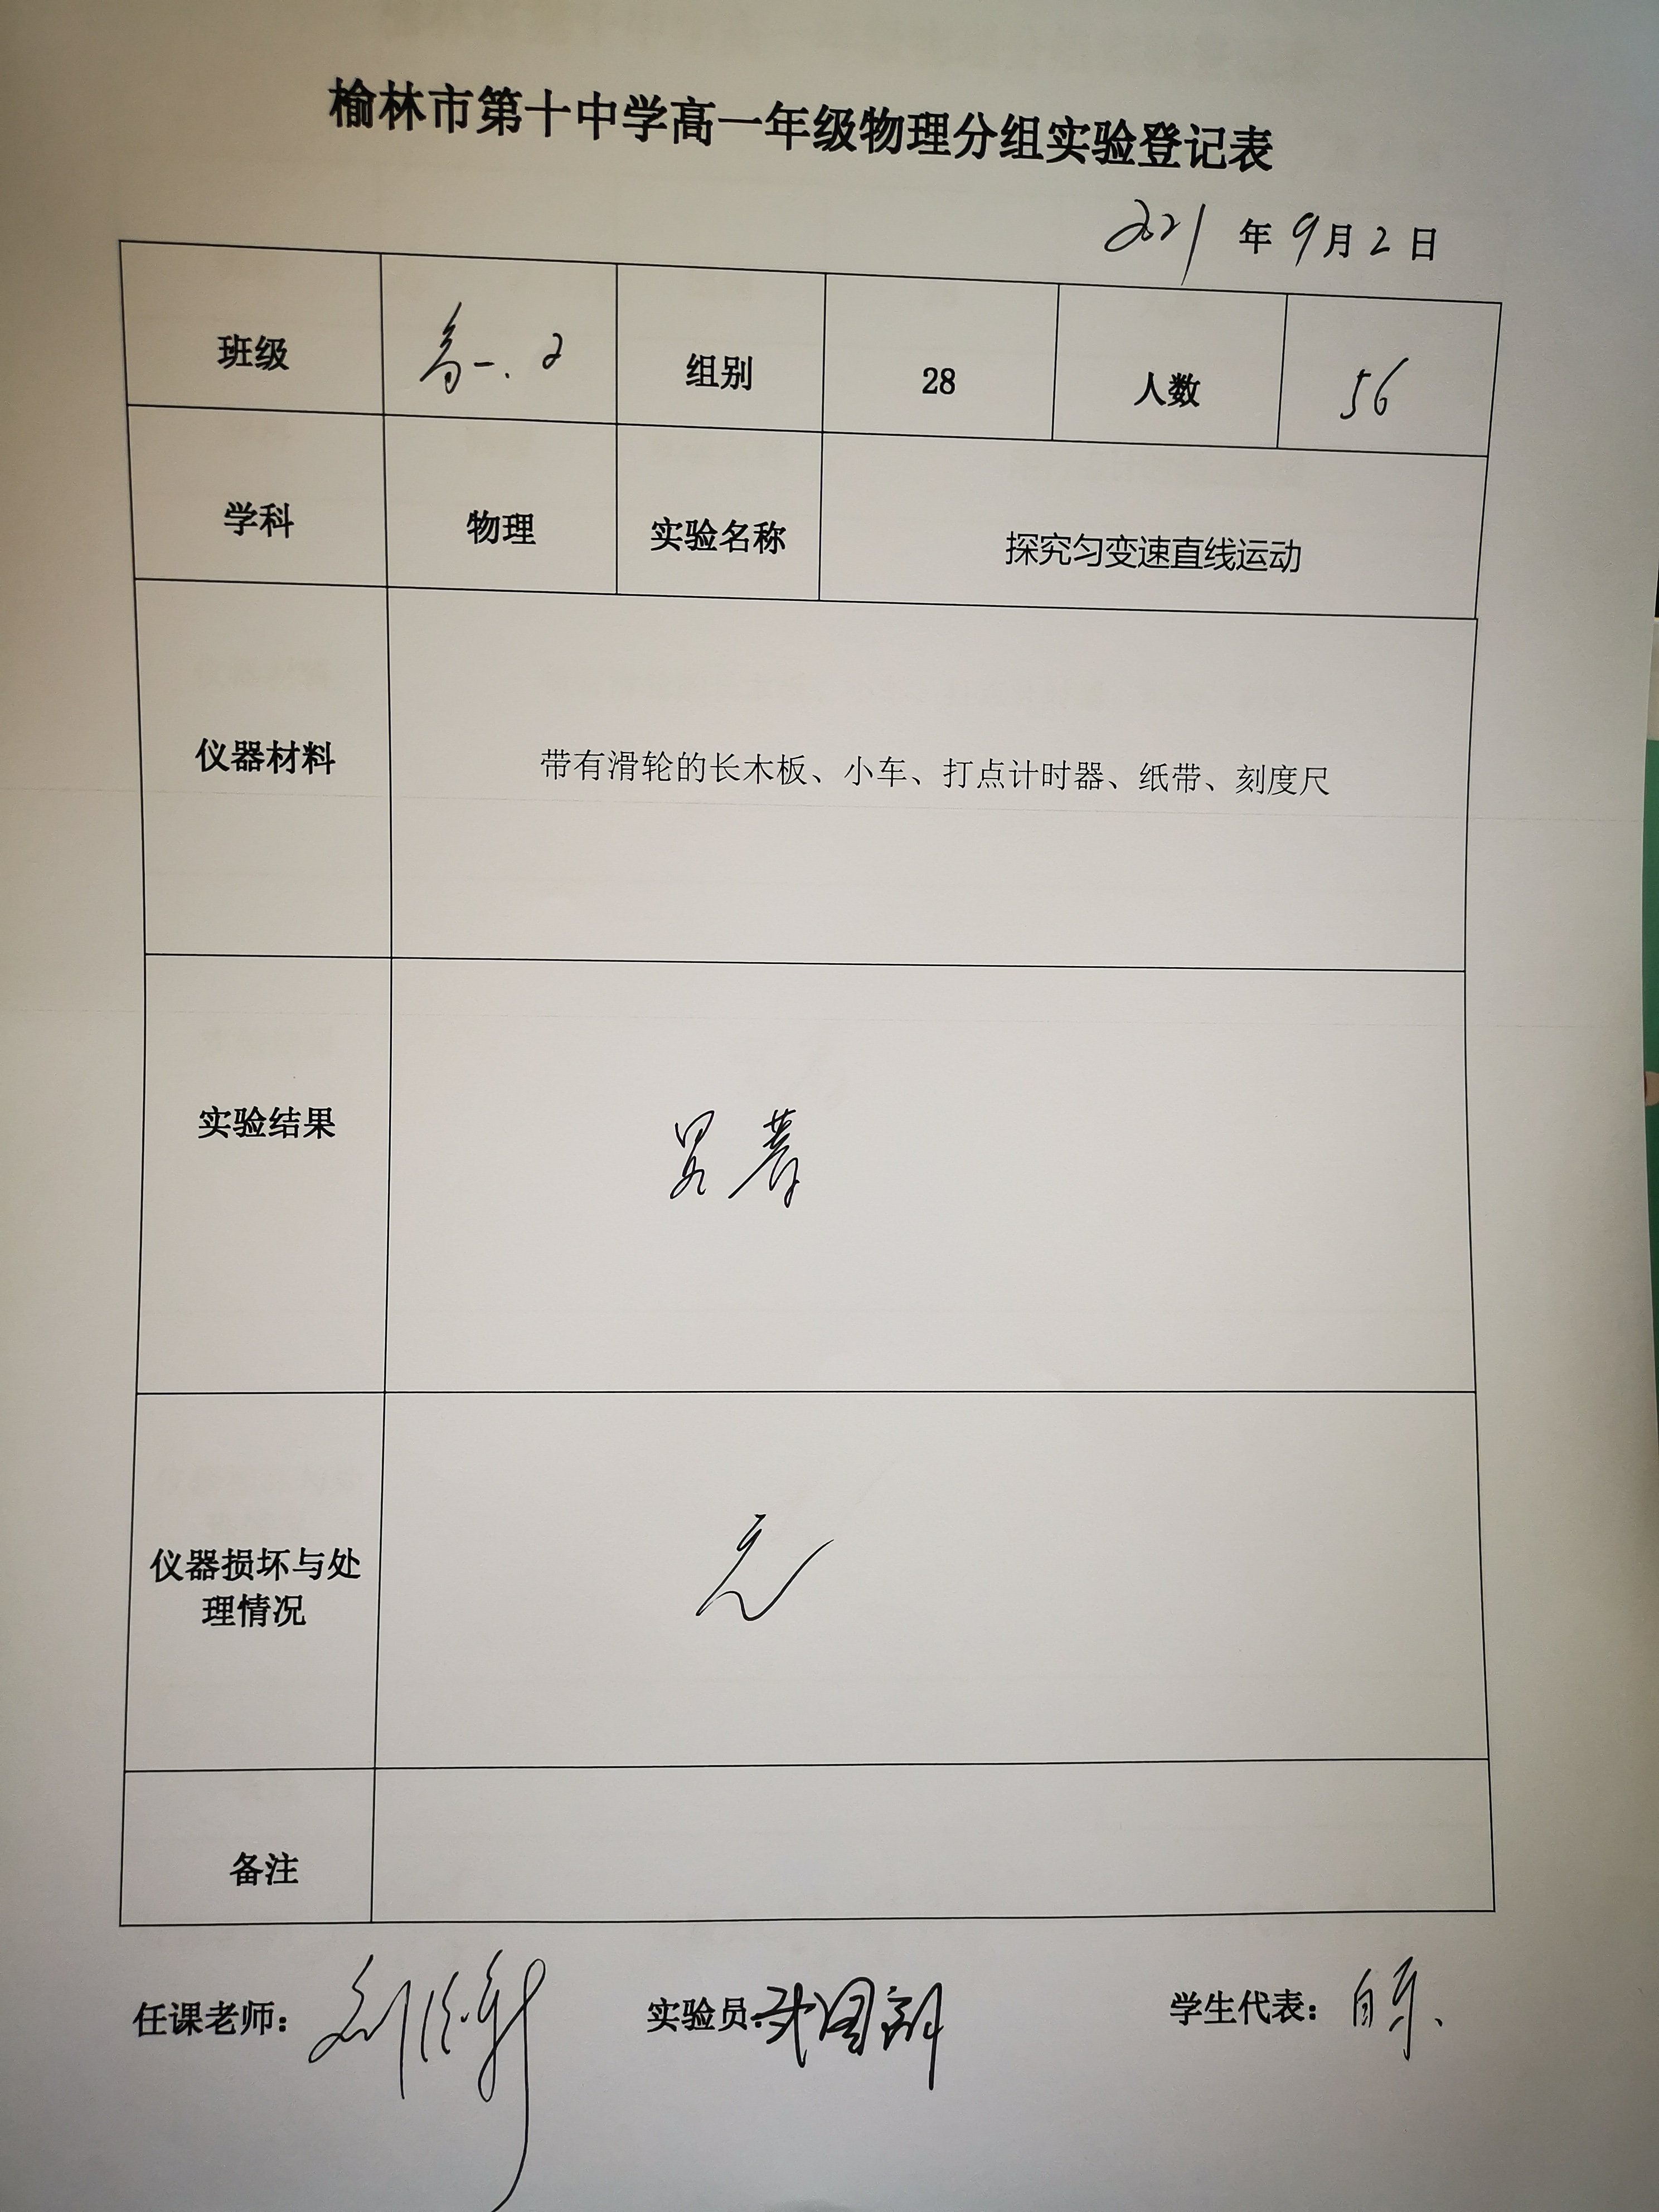 榆林市第十中学高一年级物理分组实验登记表
2021 年 9 月 2 日
班级 高一.2 组别 28 人数 56
学科 物理 实验名称 探究匀变速直线运动
仪器材料 带有滑轮的长木板、小车、打点计时器、纸带、刻度尺
实验结果
仪器损坏与处
理情况 无
备注
任课老师： 实验员： 学生代表：